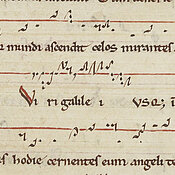 r mundi ascendit celos mirantes
Viri galilei usq;
s hodie cernentes eum angeli t